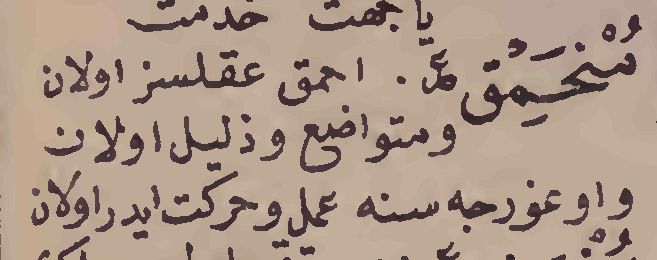 یا جهت خدمت
مُنْحَمِقْ عر. احمق عقلسز اولان
ومتواضع وذلیل اولان
واوغورجه سنه عمل وحرکت ایدر اولان